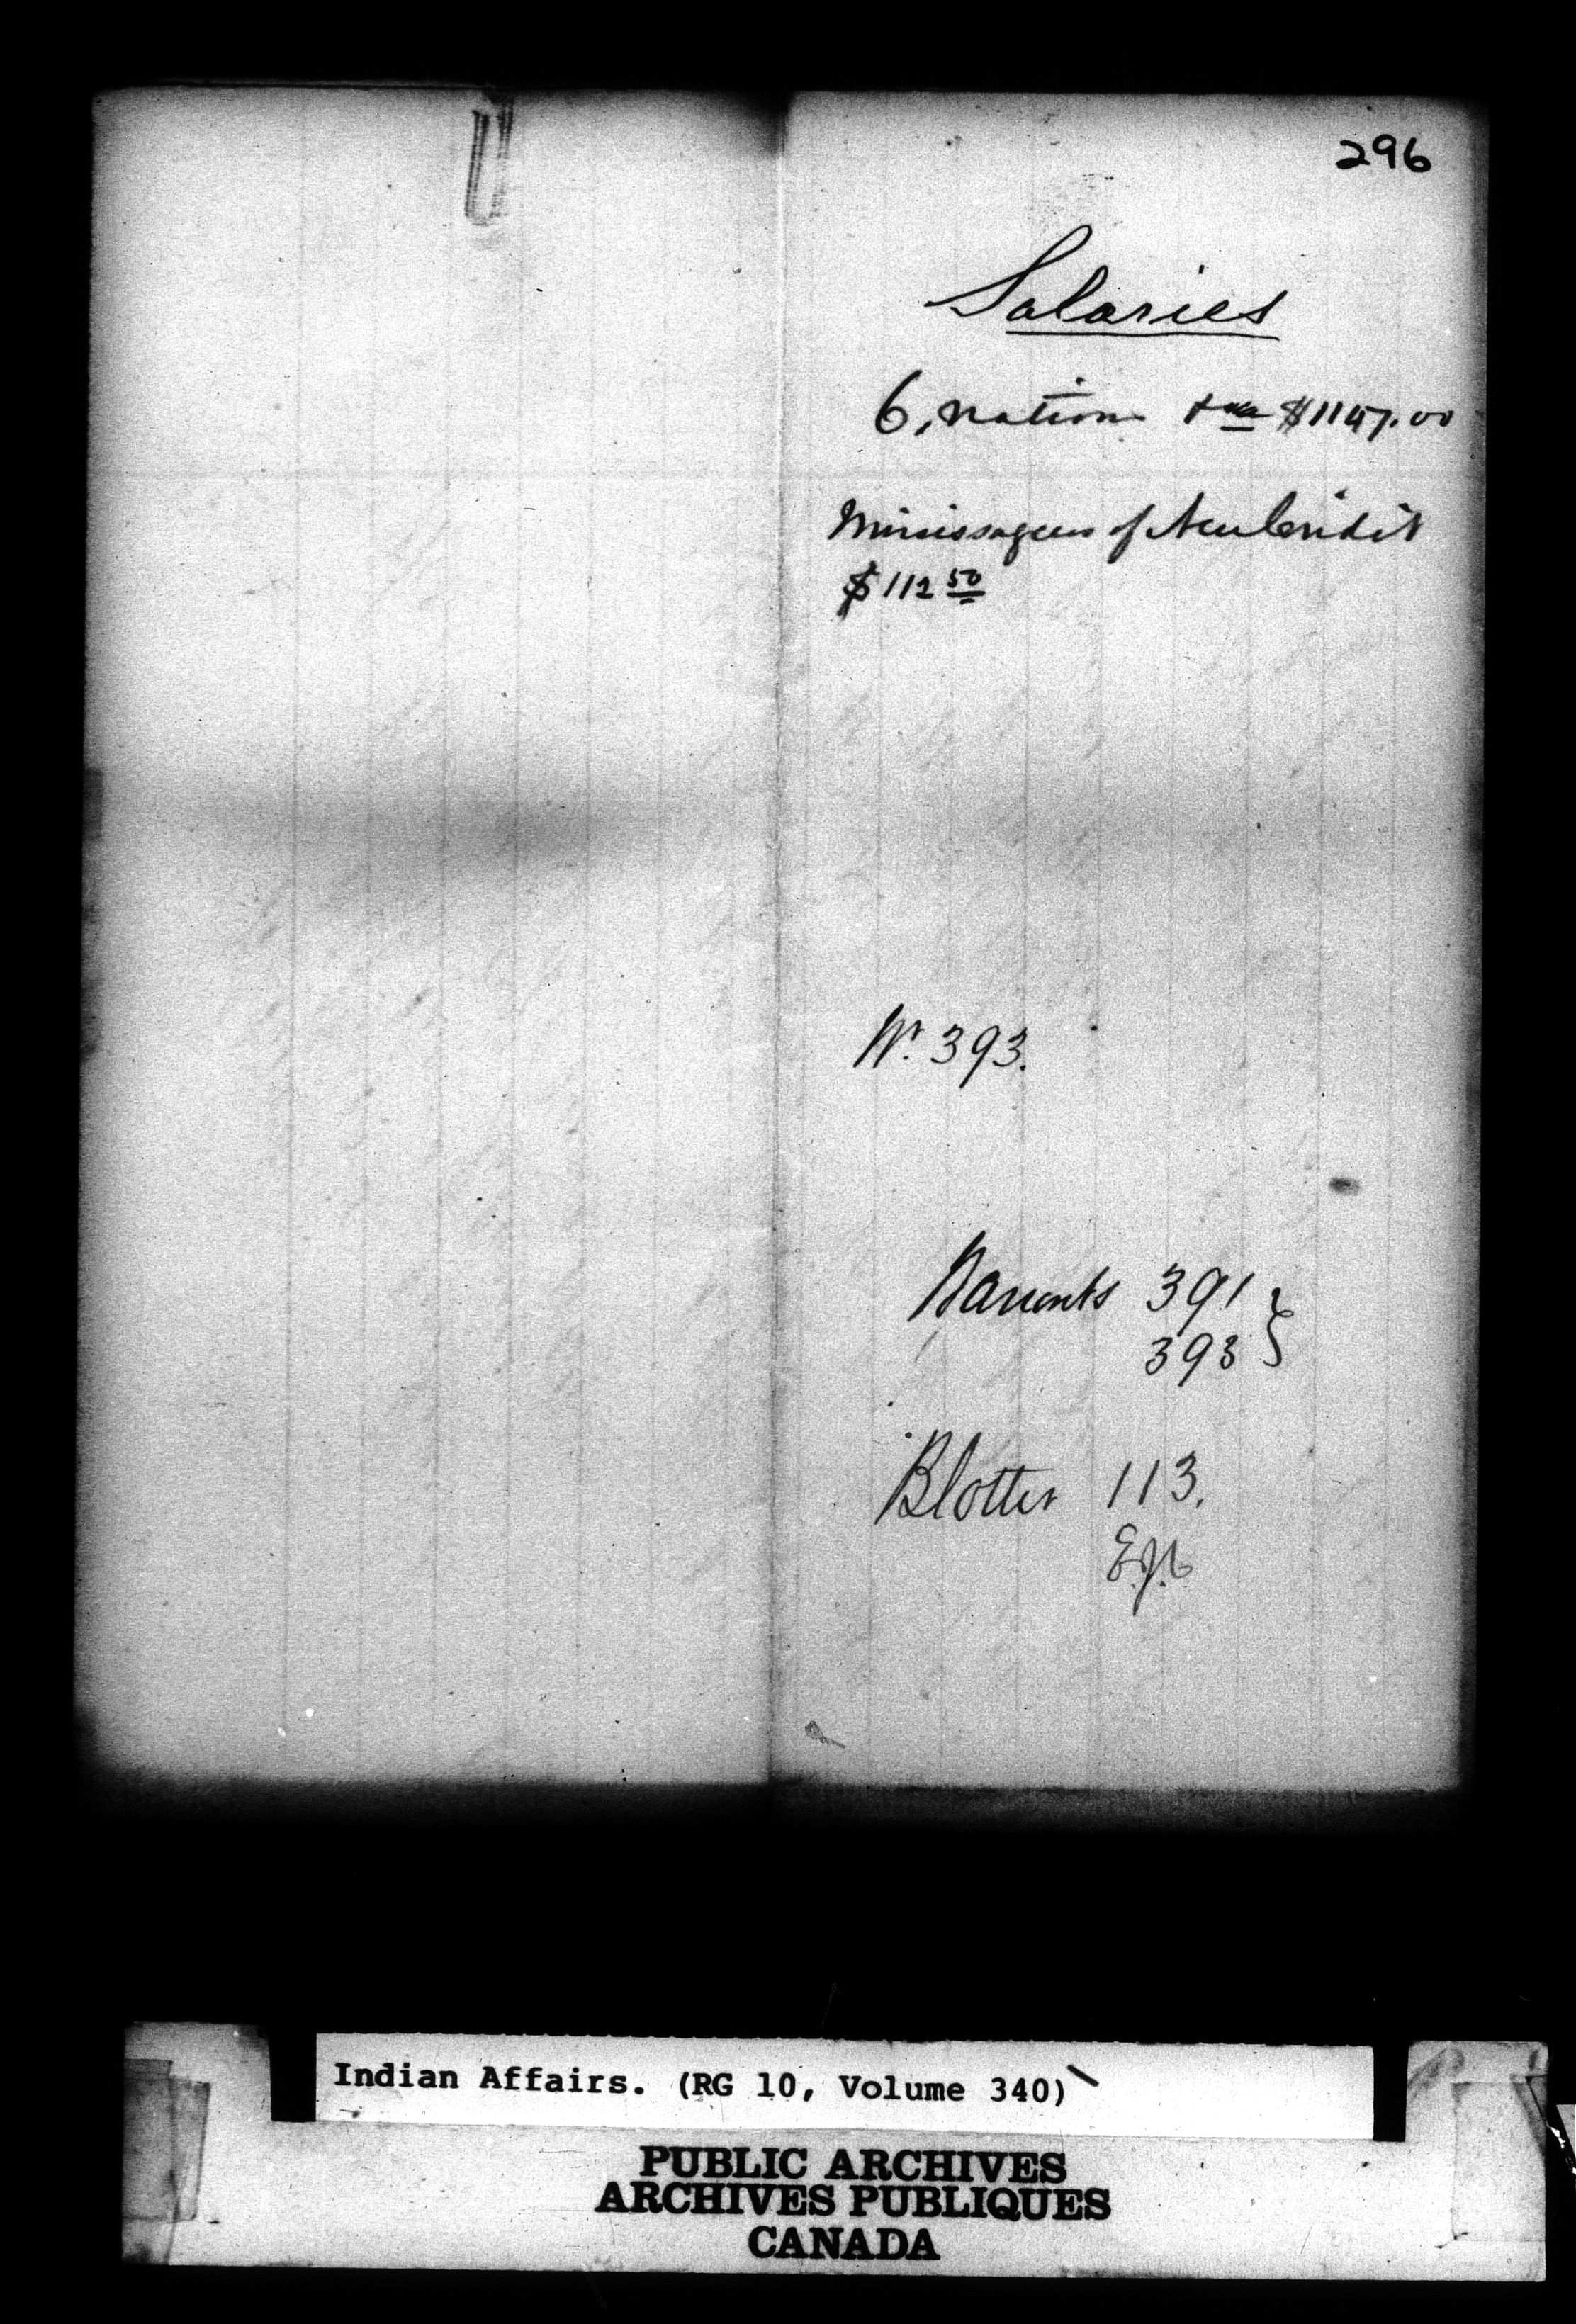 296
Salaries
6, nations $1147.00
Mississagues of New Credit
$112 50
Wt. 393.
Warrants 391 }
393
Blotter 113.
Indian Affairs. (RG 10, Volume 340)
PUBLIC ARCHIVES
ARCHIVES PUBLIQUES
CANADA